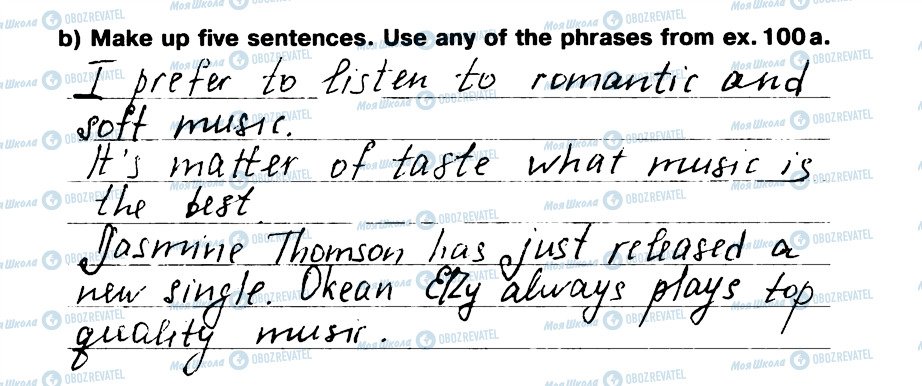 b) Make up five sentences. Use any of the phrases from ex. 100 a.
I prefer to listen to romantic and
soft music.
It's matter of taste what music is
the best.
Jasmine Thomson has just released a
new single. Okean Elzy always plays top
quality music.
Моя Школа OBOZREVATEL